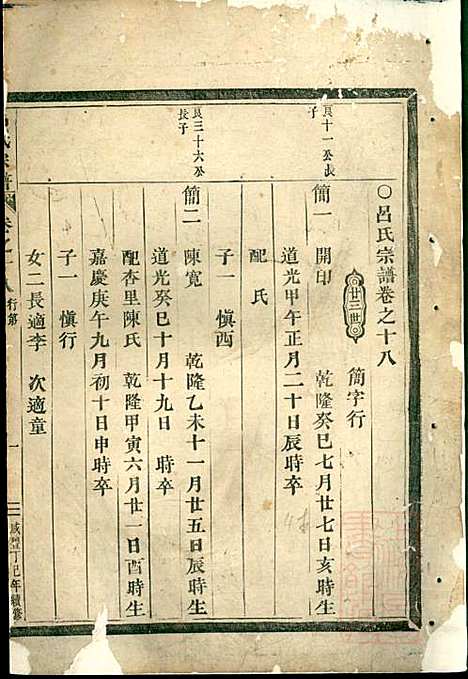 ○呂氏宗譜卷之十八
廿三世
簡字行
良十一公長子
簡一 開印 乾隆癸巳七月廿七日亥時生
道光甲午正月二十日辰時卒
配 氏
子一 慎西
良三十六公長子
簡二 陳寬 乾隆乙未十一月廿五日辰時生
道光癸巳十月十九日 時卒
配杏里陳氏 乾隆甲寅六月廿一日酉時生
嘉慶庚午九月初十日申時卒
子一 慎行
女二長適李 次適童
氏宗譜 卷之十八 行第 一 咸豐丁巳年續修